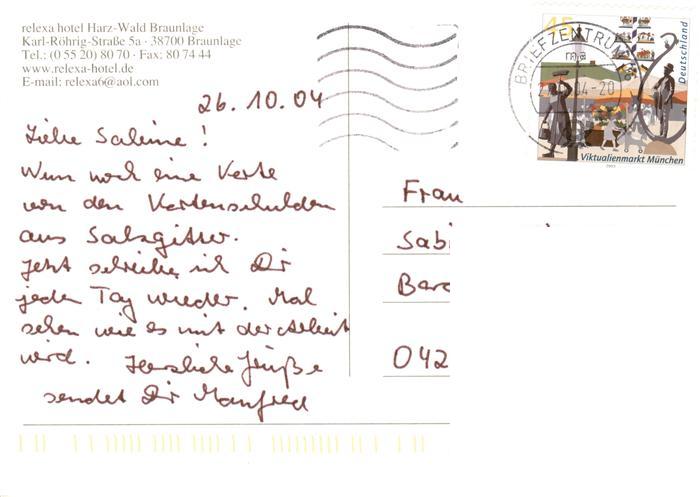 relexa hotel Harz-Wald Braunlage
Karl-Röhrig-Straße 5a · 38700 Braunlage
Tel.: (0 55 20) 80 70 · Fax: 80 74 44
www.relexa-hotel.de
E-mail: relexa6@aol.com
26.10.04
Liebe Sabine!
Nun noch eine Karte
von den Kartenschulden
aus Salzgitter.
Jetzt schreibe ich Dir
jeden Tag wieder. Mal
sehen wie es mit der Arbeit
wird. Herzliche Grüße
sendet Dir Manfred
45
Deutschland
Viktualienmarkt München
BRIEFZENTRUM
04-20
Frau
Sabi
Barc
042